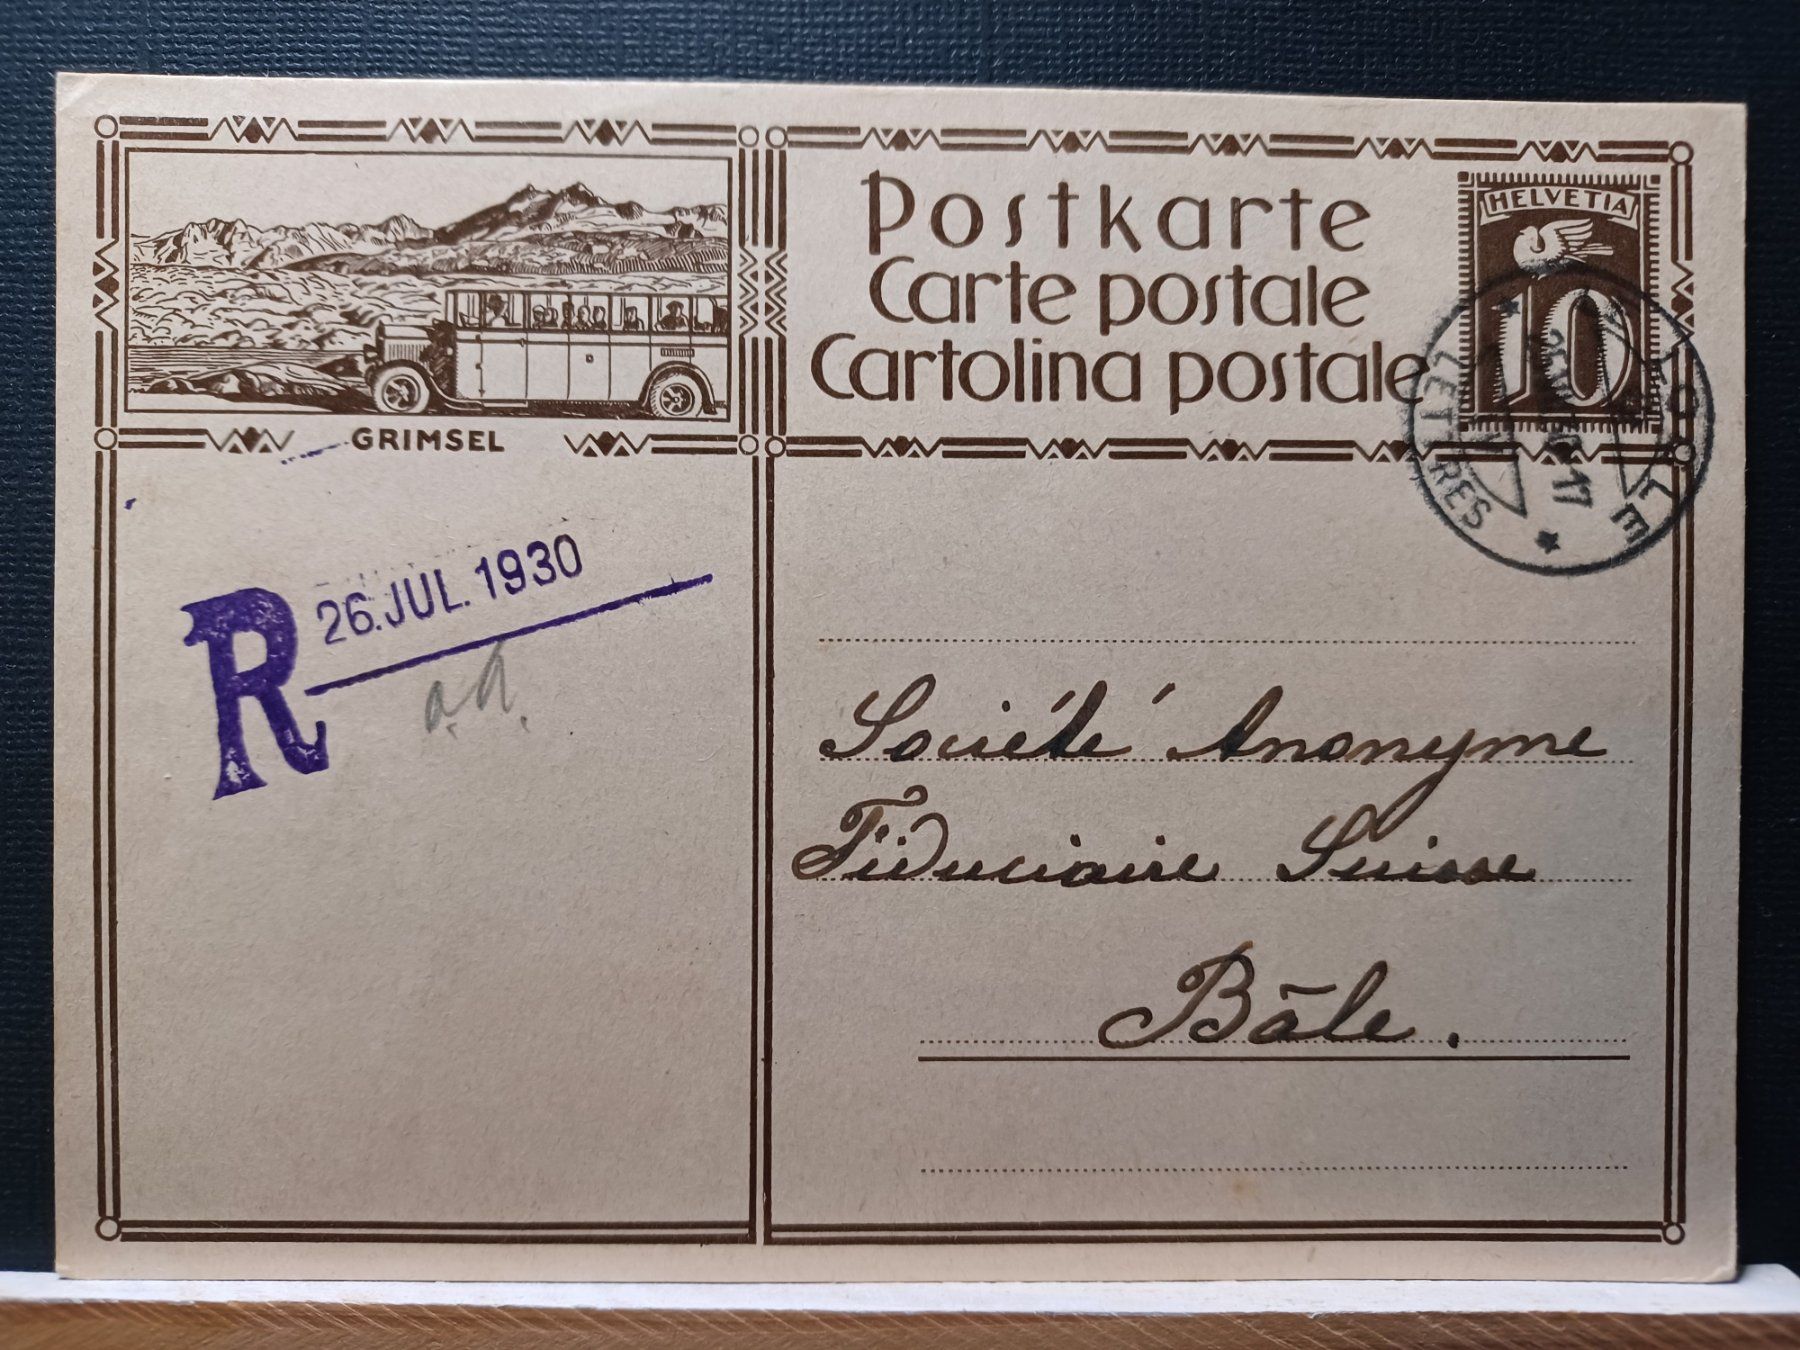 GRIMSEL
Postkarte
Carte postale
Cartolina postale
HELVETIA
10
LE LOCLE
LETTRES
17
R
26.JUL.1930
Société Anonyme
Fiduciaire Suisse
Bâle.